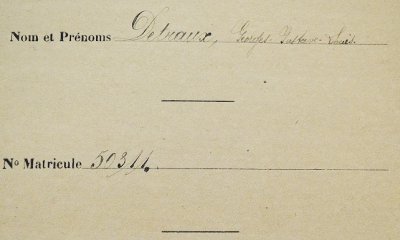 Nom et Prénoms Delvaux, Georges Gustave Louis.
No Matricule 50311.